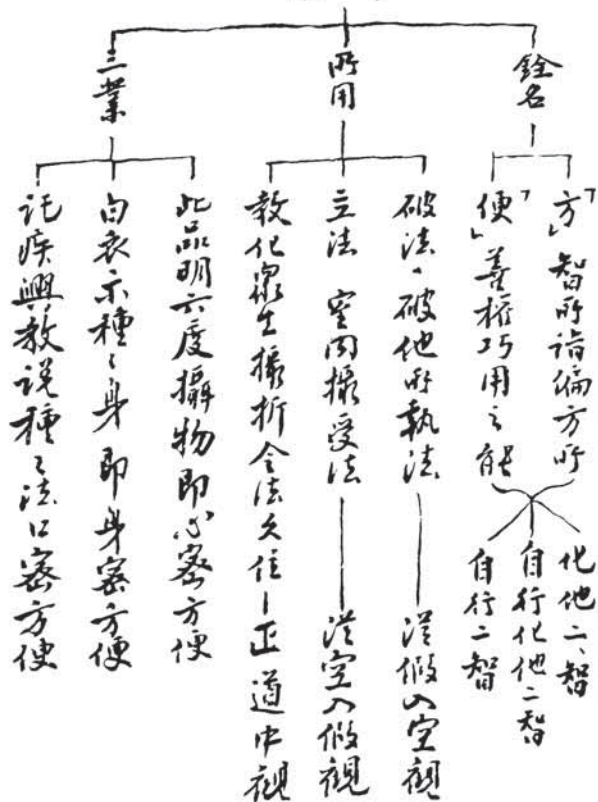 銓名
「方」智所詣偏方所
「便」善權巧用之能
化他二智
自行化他二智
自行二智
所用
破法、破他所執法——從假入空觀
立法 室內攝受法——從空入假觀
教化眾生攝折令法久住—正道中觀
三業
此品明六度攝物即心密方便
白衣示種々身即身密方便
託疾興教說種々法口密方便